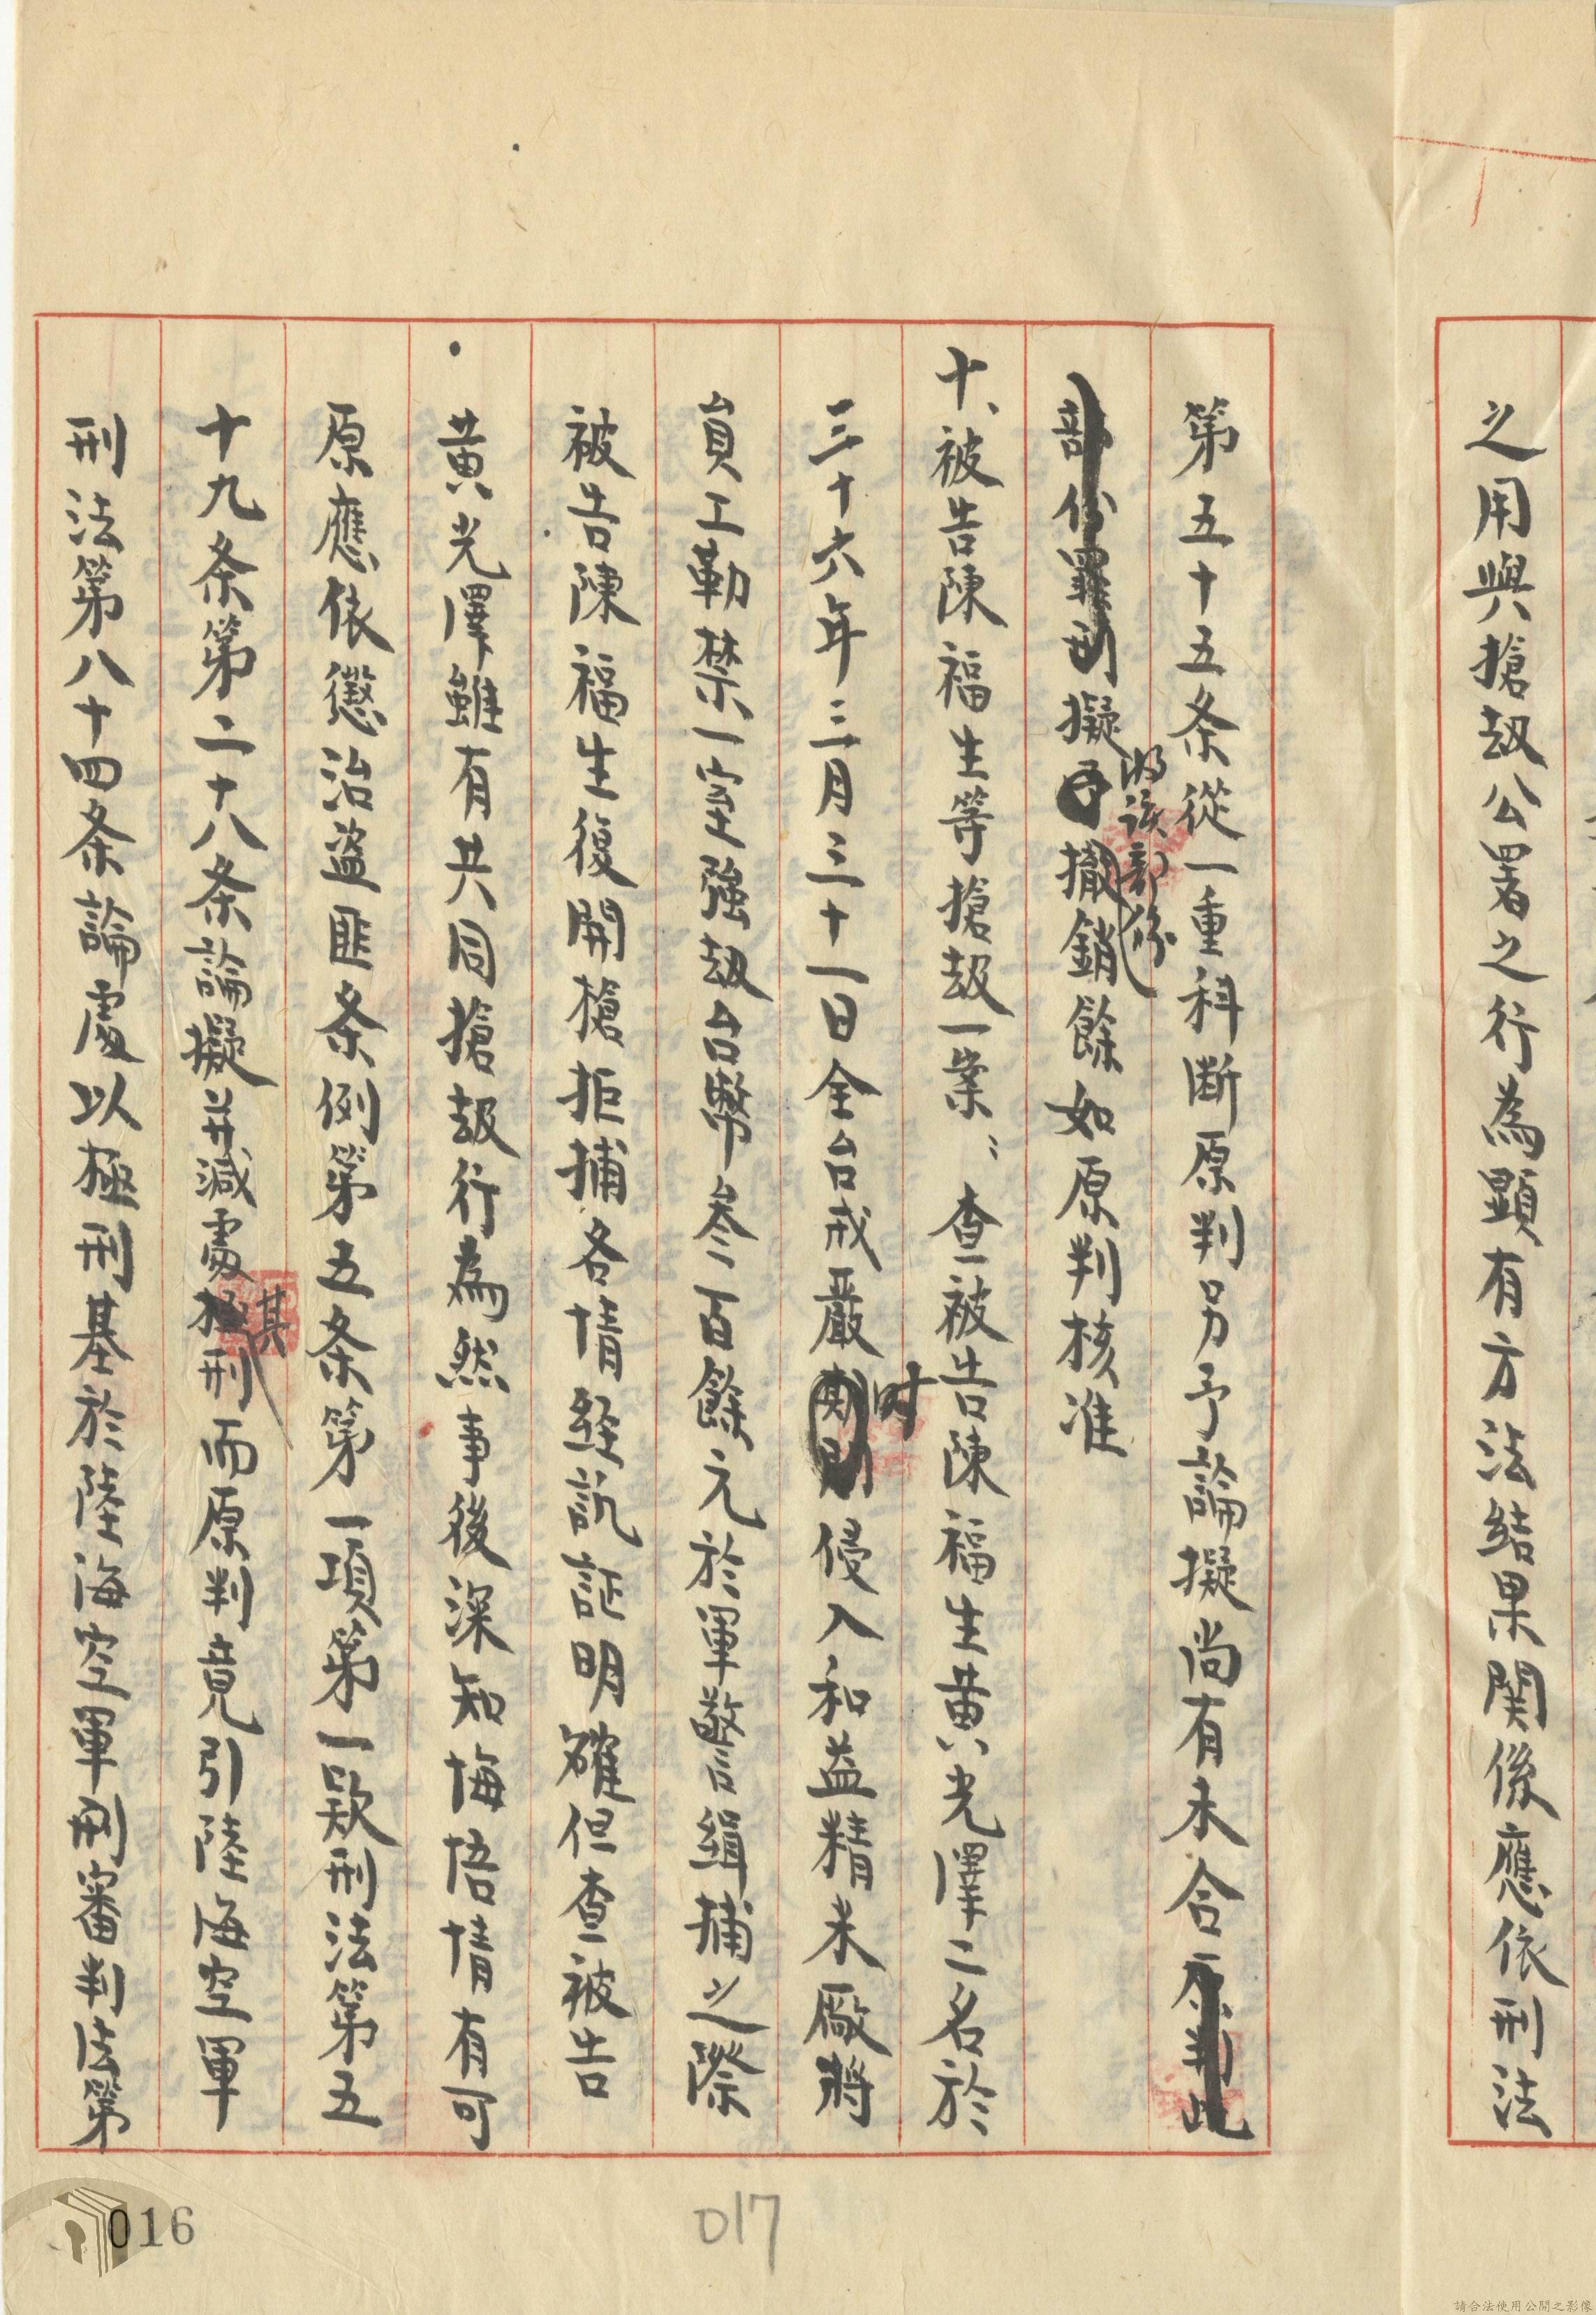 之用與搶劫公署之行為顯有方法結果關係應依刑法
第五十五条從一重科断原判另予論擬尚有未合
部份罪刑擬將該部份撤銷餘如原判核准
十、被告陳福生等搶劫一案：查被告陳福生黃光澤二名於
三十六年三月三十一日全台戒嚴时侵入和益精米廠將
員工勒禁一室強劫台幣叁百餘元於軍警緝捕之際
被告陳福生複開槍拒捕各情經訊証明確但查被告
黃光澤雖有共同搶劫行為然事後深知悔悟情有可
原應依懲治盜匪条例第五条第一項第一款刑法第五
十九条第二十八条論擬并減處其刑而原判竟引陸海空軍
刑法第八十四条論處以極刑基於陸海空軍刑審判法第
016
017
請合法使用公開之影像